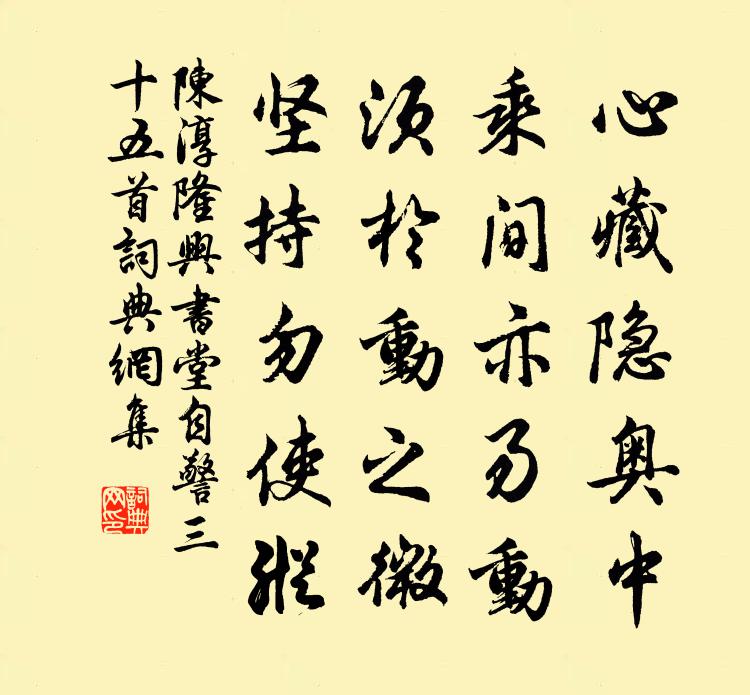 心藏隐奥中
乘间亦易動
須於動之微
坚持勿使縱
陳淳隆興書堂自警三
十五首詞典網集
詞典
网印